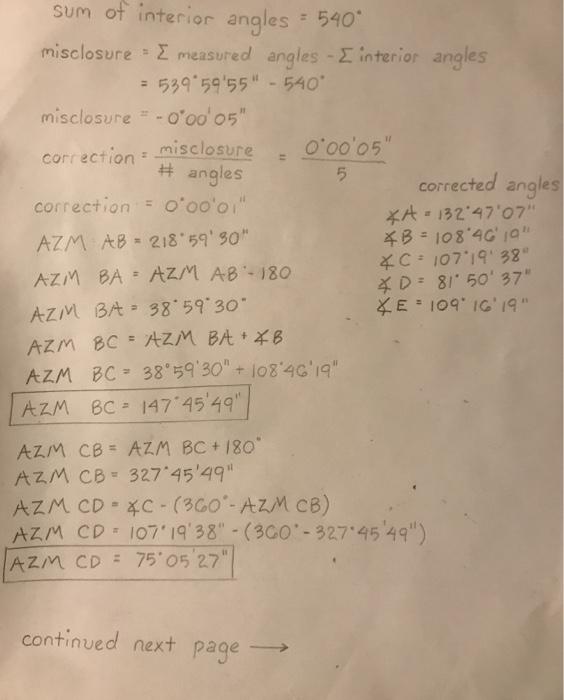 sum of interior angles = 540°
misclosure = Σ measured angles - Σ interior angles
= 539°59'55" - 540°
misclosure = -0°00'05"
correction = misclosure / # angles = 0°00'05" / 5
correction = 0°00'01"
corrected angles
∡A = 132°47'07"
∡B = 108°46'19"
∡C = 107°19'38"
∡D = 81°50'37"
∡E = 109°16'19"
AZM AB = 218°59'30"
AZM BA = AZM AB - 180
AZM BA = 38°59'30"
AZM BC = AZM BA + ∡B
AZM BC = 38°59'30" + 108°46'19"
AZM BC = 147°45'49"
AZM CB = AZM BC + 180°
AZM CB = 327°45'49"
AZM CD = ∡C - (360° - AZM CB)
AZM CD = 107°19'38" - (360° - 327°45'49")
AZM CD = 75°05'27"
continued next page →